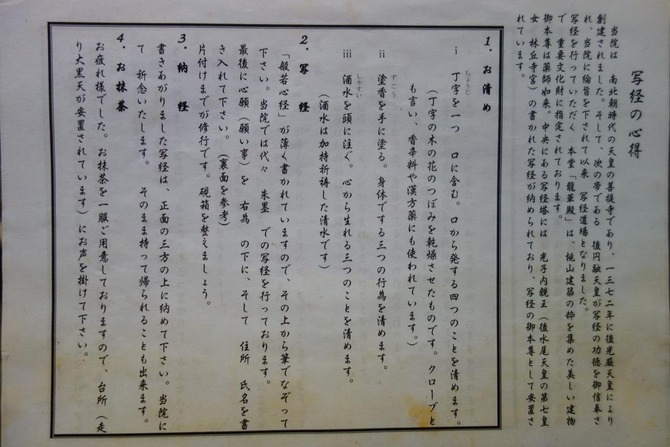 写経の心得
当院は 南北朝時代の天皇の菩提寺であり、一三七二年に後光厳天皇により
創建されました。そして、次の帝である 後円融天皇が写経の功徳を御信奉さ
れ、当院に綸旨を下されて以来 写経道場となりました。
写経を行っていただく、本堂「龍華殿」は、桃山建築の粋を集めた美しい建物
で、重要文化財に指定されております。
御本尊は薬師如来。中央にある写経塔には、光子内親王（後水尾天皇の第七皇
女 林丘寺宮）の書かれた写経が納められており、写経の御本尊として安置さ
れています。
1．お清め
ⅰ 丁字を一つ 口に含む。口から発する四つのことを清めます。
ちょうじ
（丁字の木の花のつぼみを乾燥させたものです。クローブと
も言い、香辛料や漢方薬にも使われています。）
ⅱ 塗香を手に塗る。身体でする三つの行為を清めます。
ずこう
ⅲ 洒水を頭に注ぐ。心から生れる三つのことを清めます。
しゃすい
（洒水は加持祈祷した清水です）
2．写 経
「般若心経」が薄く書かれていますので、その上から筆でなぞって
下さい。当院では代々 朱墨 での写経を行っております。
最後に心願（願い事）を 右為 の下に、そして 住所 氏名を書
き入れて下さい。（裏面を参考）
片付けまでが修行です。硯箱を整えましょう。
3．納 経
書きあがりました写経は、正面の三方の上に納めて下さい。当院に
て 祈念いたします。 そのまま持って帰られることも出来ます。
4．お抹茶
お疲れ様でした。お抹茶を一服ご用意しておりますので、台所（走
り大黒天が安置されています）にお声を掛けて下さい。